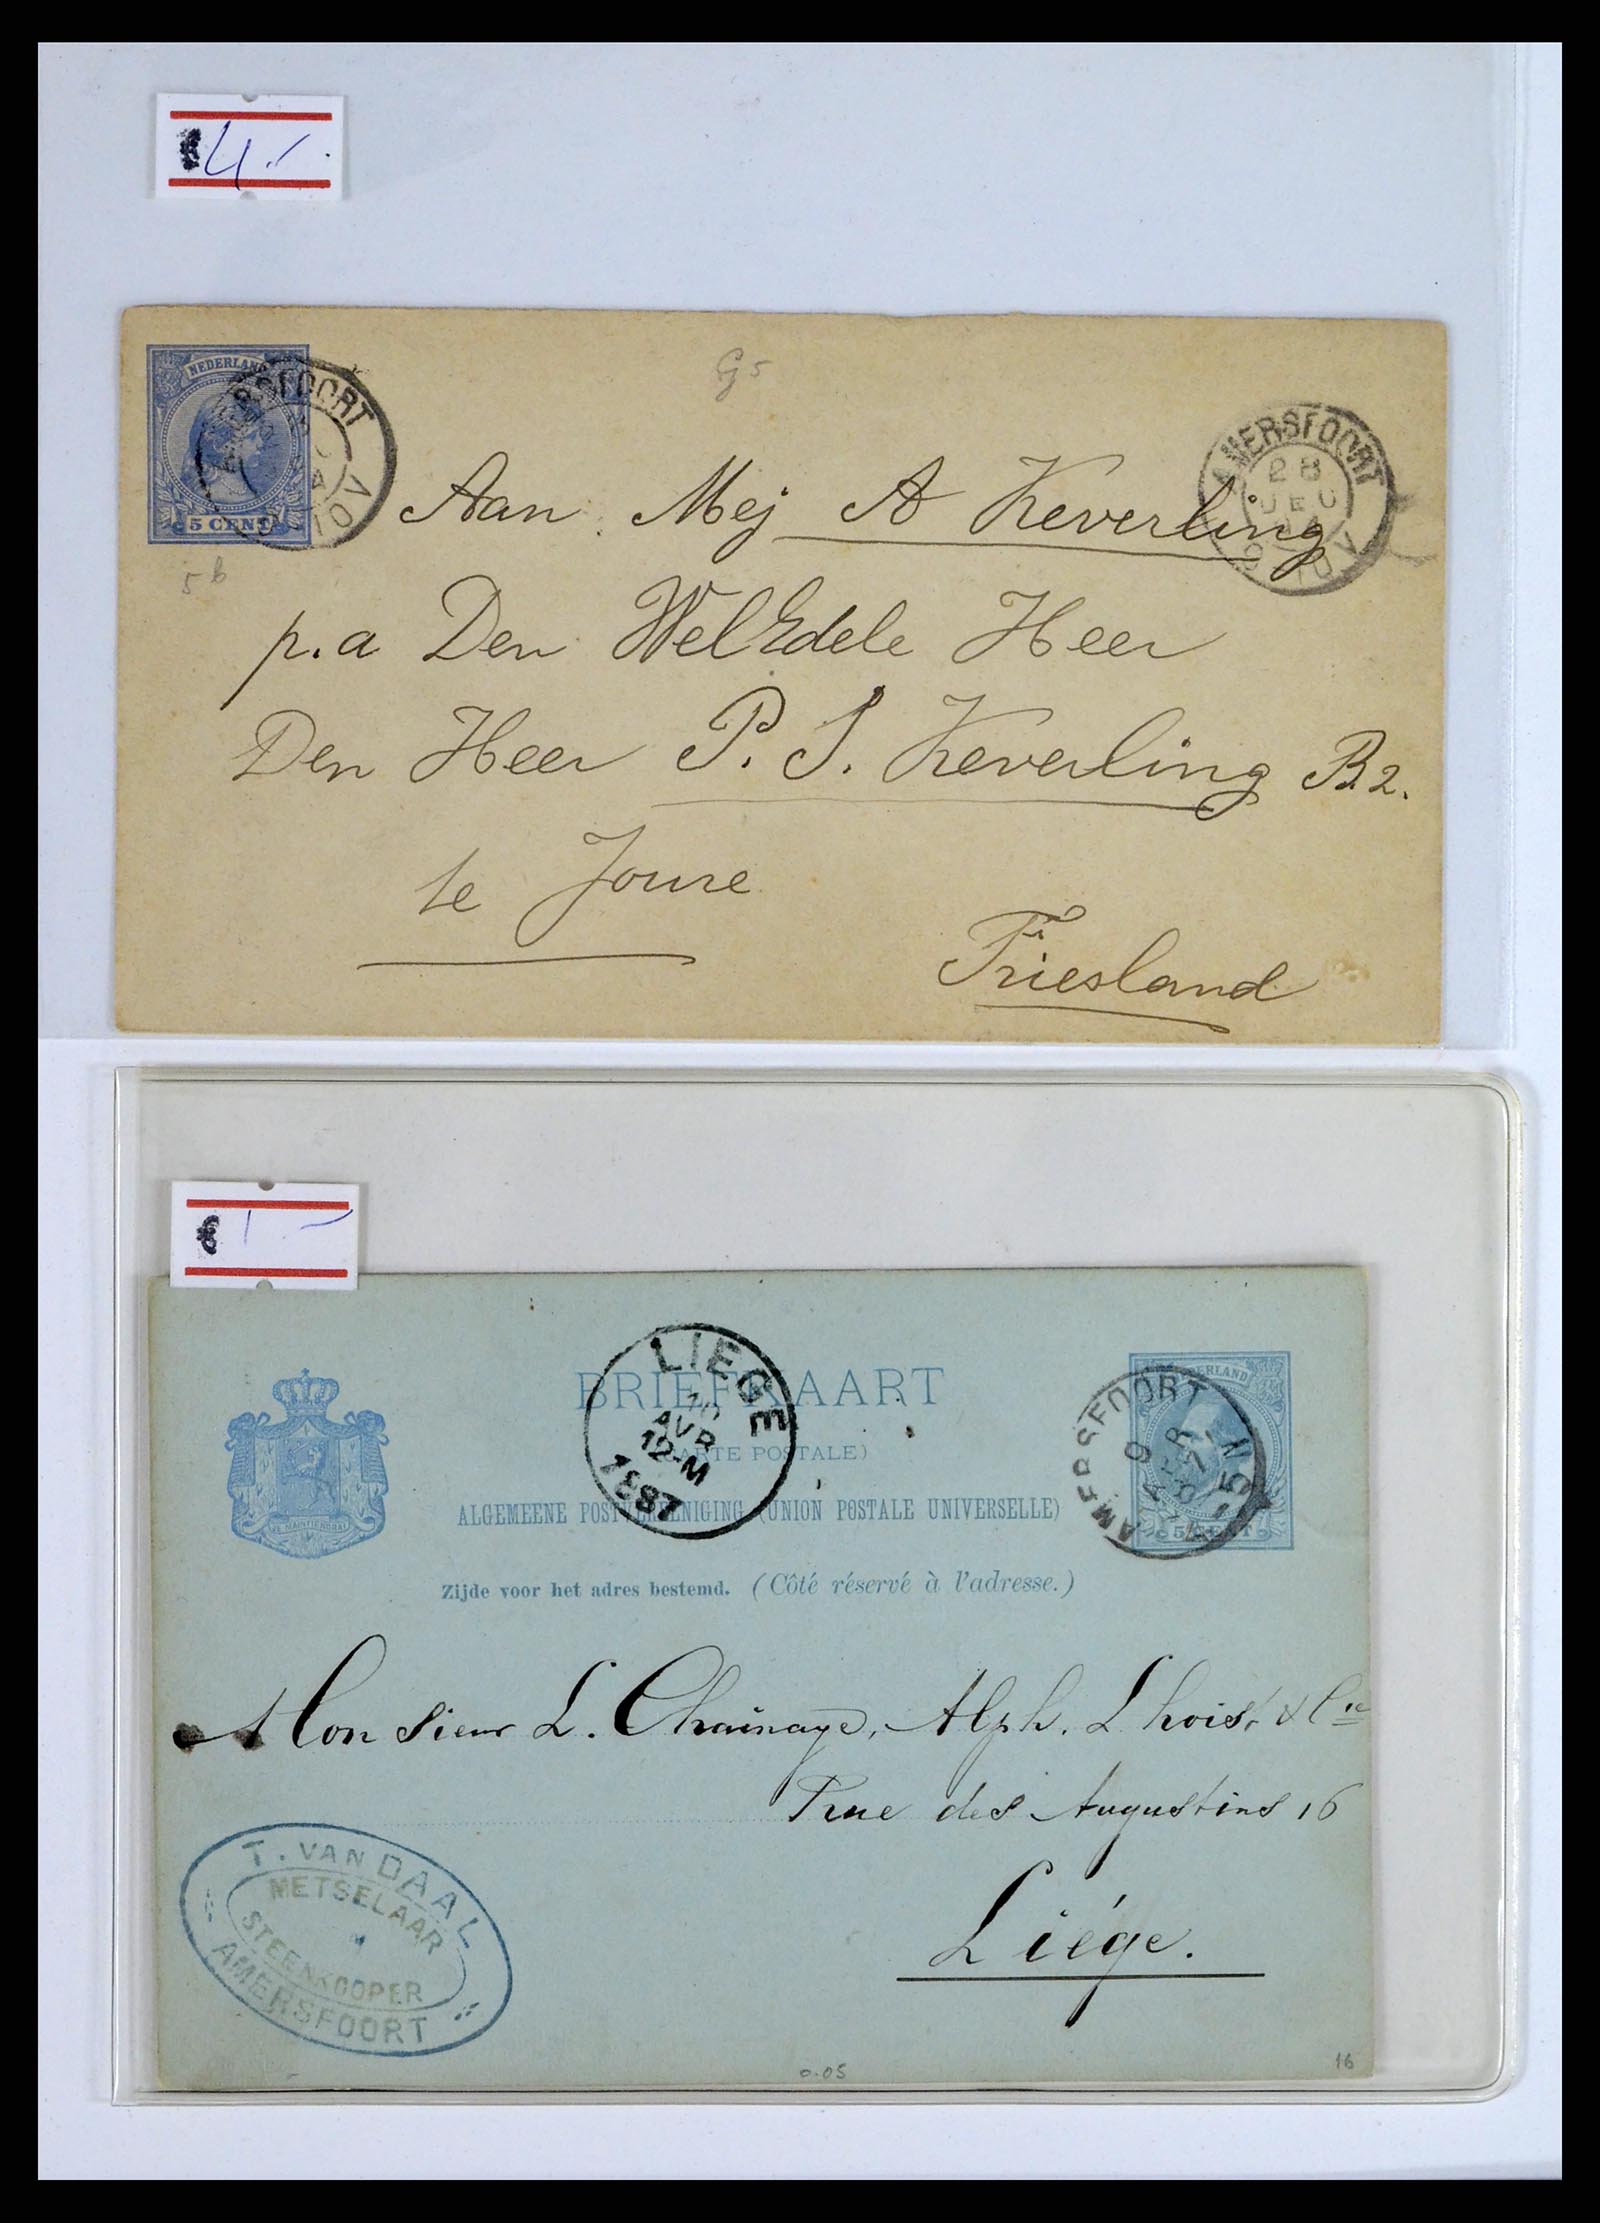 4.-
NEDERLAND
5 CENT
AMERSFOORT
10V
G5
AMERSFOORT
28
DEC
94
9-10V
5b
Aan Mej A Keverling
p.a Den WelEdele Heer
Den Heer P. S. Keverling B.2.
te Joure
Friesland
1 -
BRIEFKAART
(CARTE POSTALE)
ALGEMEENE POSTVEREENIGING (UNION POSTALE UNIVERSELLE)
Zijde voor het adres bestemd. (Côté réservé à l'adresse.)
JE MAINTIENDRAI
LIEGE
10
AVR
12-M
1887
NEDERLAND
5 CENT
AMERSFOORT
9
APR
87
-5N
Monsieur L. Chainaye, Alph. Lhoist & Cie
Rue des Augustins 16
Liége.
T. VAN DAAL
METSELAAR
STEENKOOPER
AMERSFOORT
0.05
16